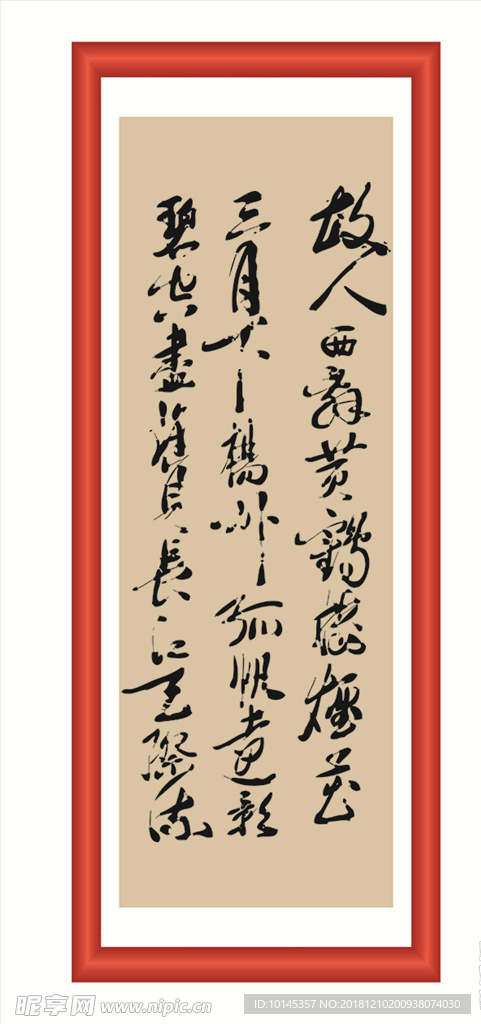 故人西辭黃鶴樓煙花
三月下揚州孤帆遠影
碧空盡唯見長江天際流
昵享网 www.nipic.cn
ID:10145357 NO:20181210200938074030